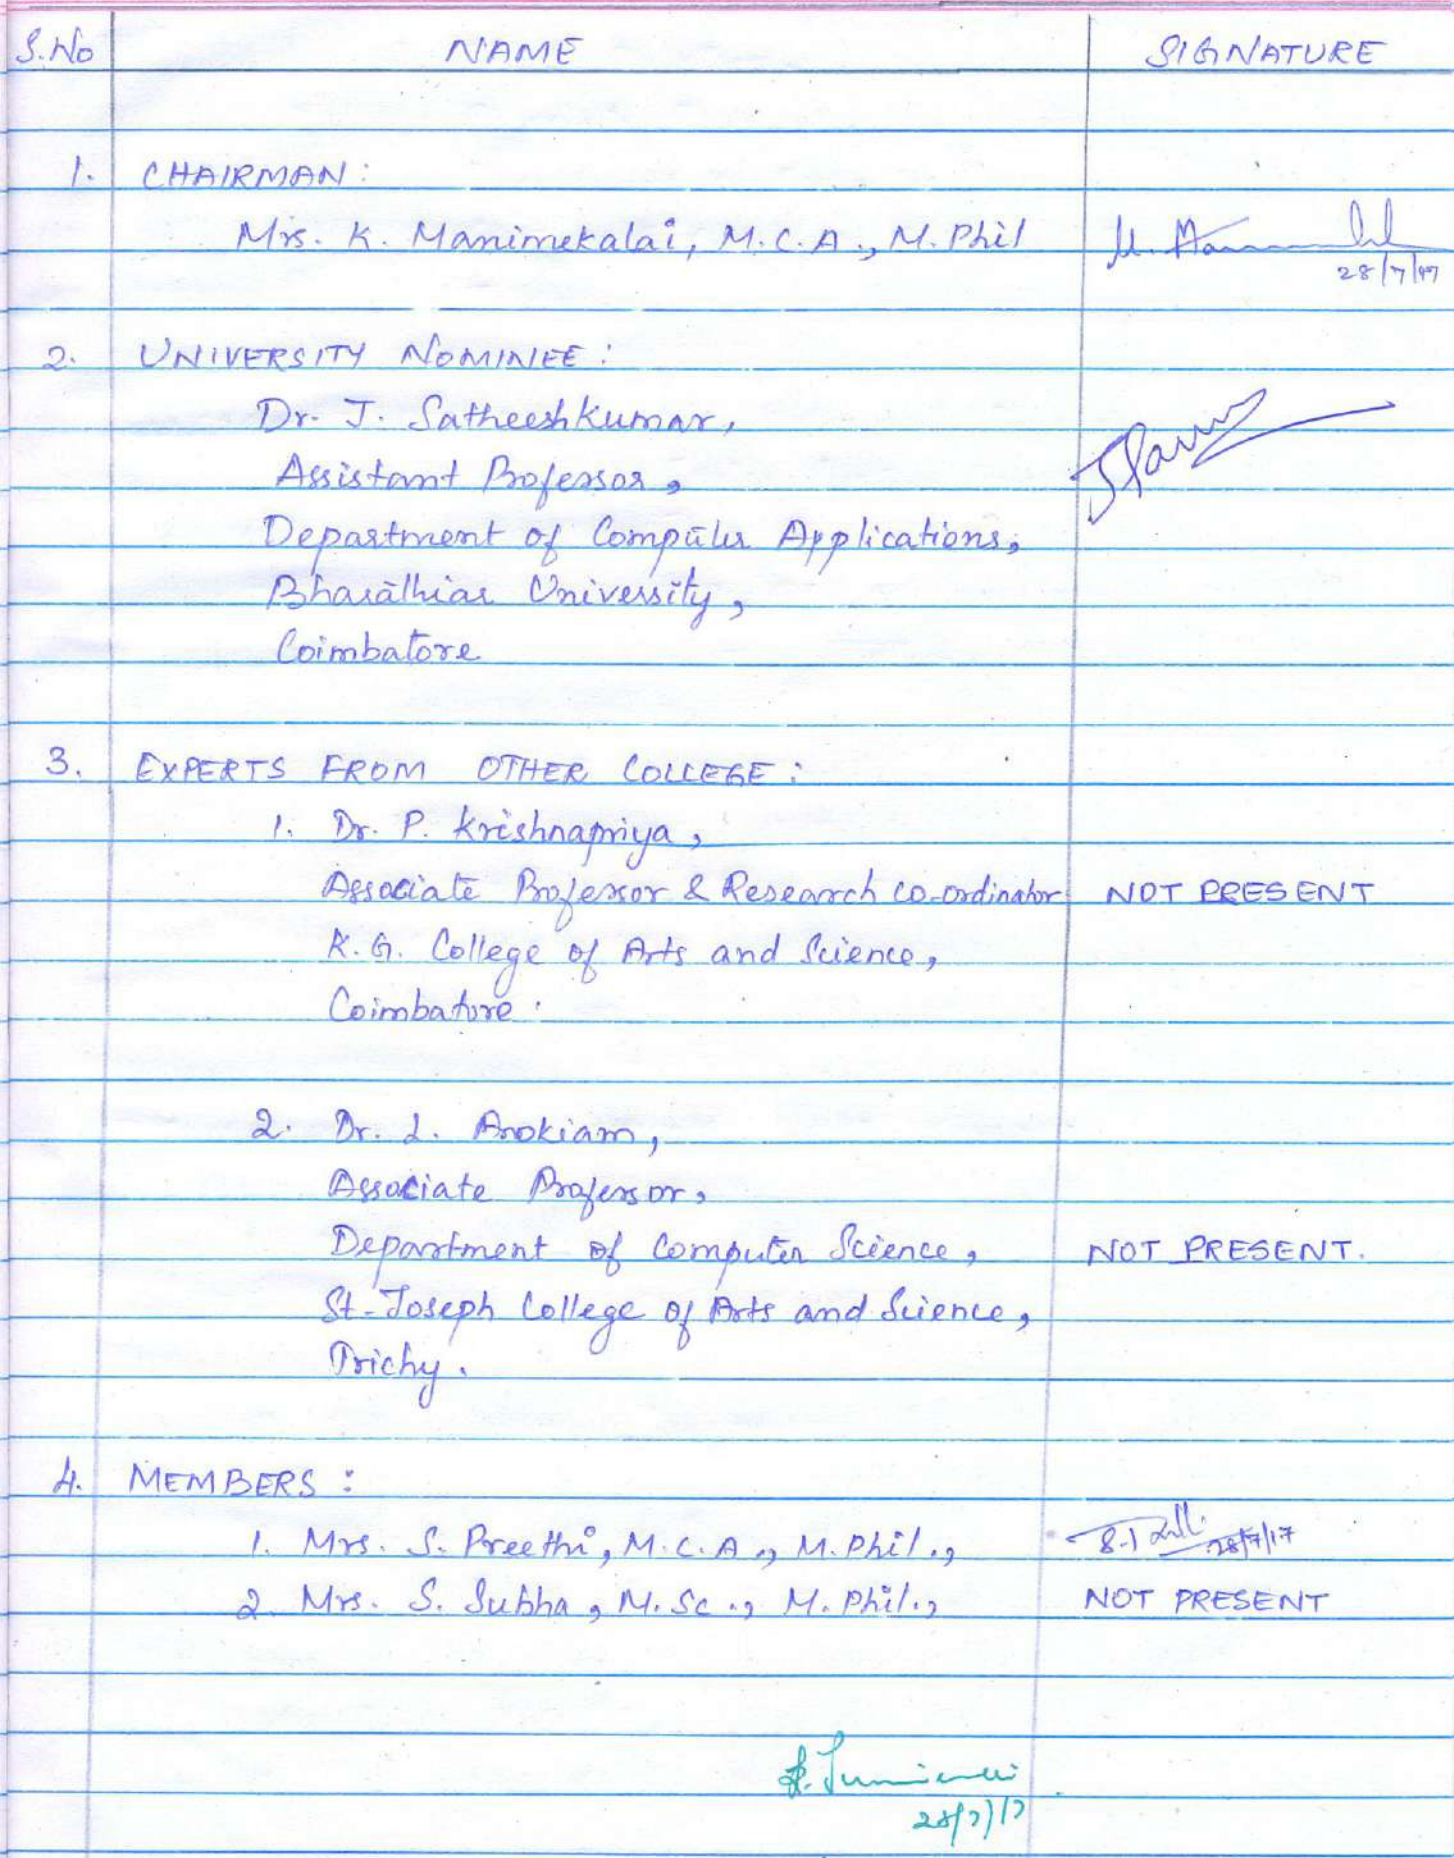 S.No NAME SIGNATURE
1. CHAIRMAN:
Mrs. K. Manimekalai, M.C.A., M.Phil
28/7/17
2. UNIVERSITY NOMINEE:
Dr. J. Satheeshkumar,
Assistant Professor,
Department of Computer Applications,
Bharathiar University,
Coimbatore
3. EXPERTS FROM OTHER COLLEGE:
1. Dr. P. Krishnapriya,
Associate Professor & Research co-ordinator NOT PRESENT
K.G. College of Arts and Science,
Coimbatore.
2. Dr. L. Arokiam,
Associate Professor,
Department of Computer Science, NOT PRESENT.
St-Joseph College of Arts and Science,
Trichy.
4. MEMBERS:
1. Mrs. S. Preethi, M.C.A., M.Phil., 28/7/17
2. Mrs. S. Subha, M.Sc., M.Phil., NOT PRESENT
28/7/17